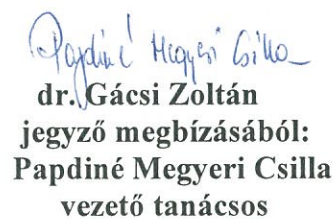 Papdiné Megyeri Csilla
dr. Gácsi Zoltán
jegyző megbízásából:
Papdiné Megyeri Csilla
vezető tanácsos